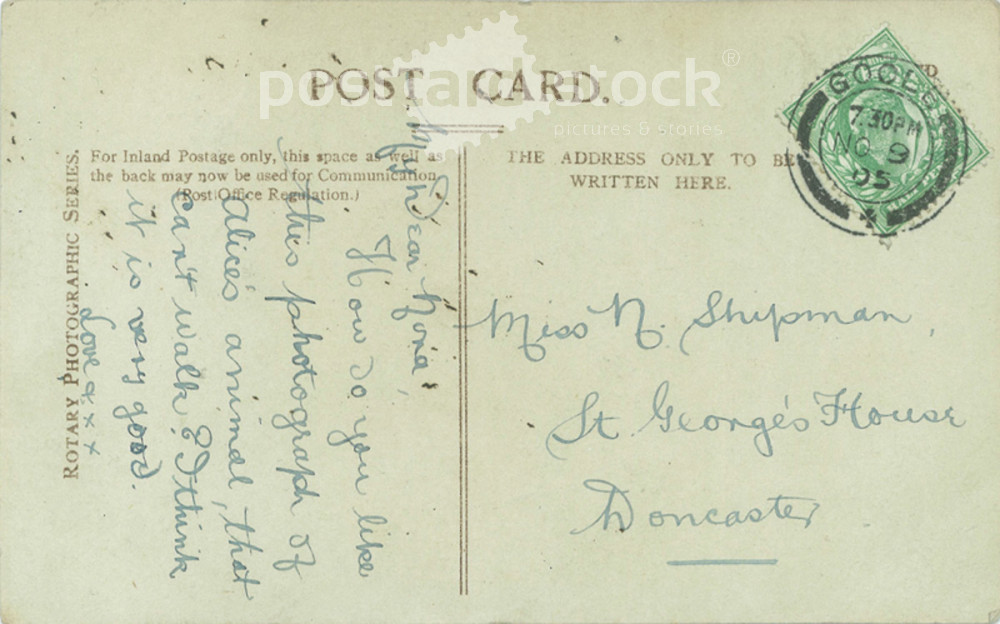 POST CARD.
postcard stock®
pictures & stories
ROTARY PHOTOGRAPHIC SERIES.
For Inland Postage only, this space as well as
the back may now be used for Communication
(Post Office Regulation.)
THE ADDRESS ONLY TO BE
WRITTEN HERE.
GOOLE
7.30PM
NO 9
05
My Dear Nona,
How do you like
this photograph of
Alice's animal, that
can't walk? I think
it is very good.
Love x x x
Miss N. Shipman,
St. George's House
Doncaster